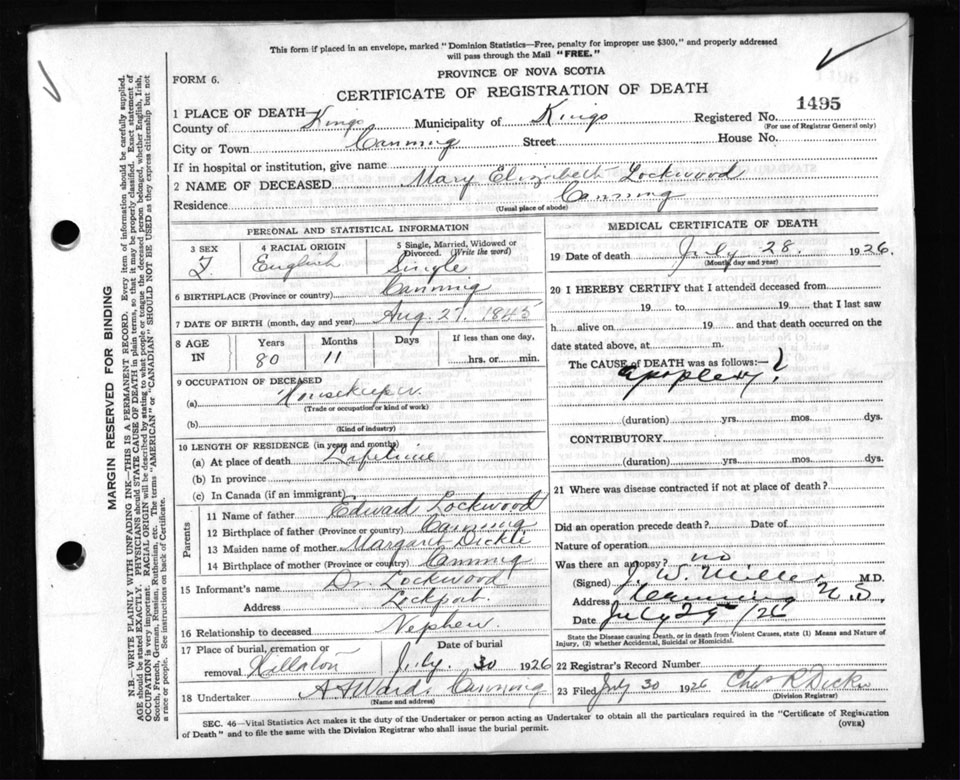 This form if placed in an envelope, marked "Dominion Statistics—Free, penalty for improper use $300," and properly addressed
will pass through the Mail "FREE."
PROVINCE OF NOVA SCOTIA
FORM 6.
CERTIFICATE OF REGISTRATION OF DEATH
1495
1 PLACE OF DEATH
County of Kings Municipality of Kings Registered No.
(For use of Registrar General only)
City or Town Canning Street House No.
If in hospital or institution, give name
2 NAME OF DECEASED Mary Elizabeth Lockwood
Residence Canning
(Usual place of abode)
PERSONAL AND STATISTICAL INFORMATION
3 SEX 4 RACIAL ORIGIN 5 Single, Married, Widowed or Divorced. (Write the word)
F. English Single
6 BIRTHPLACE (Province or country) Canning
7 DATE OF BIRTH (month, day and year) Aug. 27. 1845
8 AGE IN Years Months Days If less than one day,
80 11 hrs. or min.
9 OCCUPATION OF DECEASED
(a) Housekeeper.
(Trade or occupation or kind of work)
(b)
(Kind of industry)
10 LENGTH OF RESIDENCE (in years and months)
(a) At place of death Lifetime
(b) In province
(c) In Canada (if an immigrant)
Parents
11 Name of father Edward Lockwood
12 Birthplace of father (Province or country) Canning
13 Maiden name of mother Margaret Dickie
14 Birthplace of mother (Province or country) Canning
15 Informant's name Dr. Lockwood
Address Lockport.
16 Relationship to deceased Nephew.
17 Place of burial, cremation or removal Date of burial
Hillaton July. 30 1926
18 Undertaker Ward. Canning
(Name and address)
MEDICAL CERTIFICATE OF DEATH
19 Date of death July 28. 1926.
(Month, day and year)
20 I HEREBY CERTIFY that I attended deceased from
19 to 19 that I last saw
h alive on 19 and that death occurred on the
date stated above, at m.
The CAUSE of DEATH was as follows:—
apoplexy?
(duration) yrs. mos. dys.
CONTRIBUTORY
(duration) yrs. mos. dys.
21 Where was disease contracted if not at place of death?
Did an operation precede death? Date of
Nature of operation
Was there an autopsy? no
(Signed) J. W. Miller M.D.
Address Canning N.S.
Date July 29/26
State the Disease causing Death, or in death from Violent Causes, state (1) Means and Nature of
Injury, (2) whether Accidental, Suicidal or Homicidal.
22 Registrar's Record Number
23 Filed July 30 1926 Chas R Dickie
(Division Registrar)
SEC. 46—Vital Statistics Act makes it the duty of the Undertaker or person acting as Undertaker to obtain all the particulars required in the "Certificate of Registration
of Death" and to file the same with the Division Registrar who shall issue the burial permit.
(OVER)
MARGIN RESERVED FOR BINDING
N.B.—WRITE PLAINLY WITH UNFADING INK—THIS IS A PERMANENT RECORD. Every item of information should be carefully supplied.
AGE should be stated EXACTLY. PHYSICIANS should STATE CAUSE OF DEATH in plain terms, so that it may be properly classified. Exact statement of
OCCUPATION is very important. RACIAL ORIGIN will be described by stating to what people or tongue the deceased person belonged, whether English, Irish,
Scotch, French, German, Russian, Ruthenian, etc. The terms "AMERICAN" or "CANADIAN" SHOULD NOT BE USED as they express citizenship but not
a race or people. See instructions on back of Certificate.